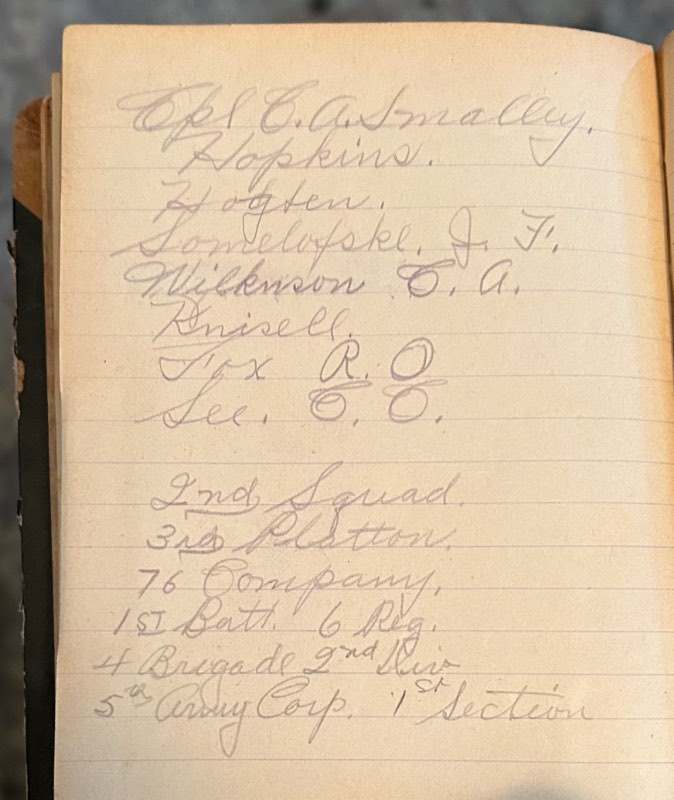 Cpl C. A. Smalley.
Hopkins.
Hogten.
Somelofske. J. F.
Wilknson C. A.
Knisell.
Fox R. O
See. C. C.
2nd Squad.
3rd Platton.
76 Company.
1ST Batt. 6 Reg.
4 Brigade 2nd Div
5th Army Corp. 1st Section